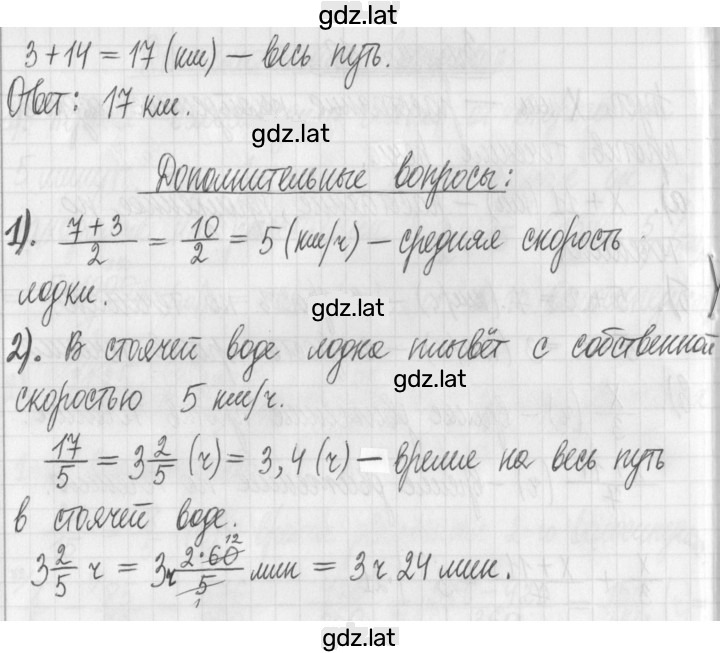 gdz.lat
3 + 14 = 17 (км) – весь путь.
Ответ: 17 км.
gdz.lat
Дополнительные вопросы:
1). (7+3)/2 = 10/2 = 5 (км/ч) – средняя скорость
лодки.
gdz.lat
2). В стоячей воде лодка плывёт с собственной
gdz.lat
скоростью 5 км/ч.
17/5 = 3 2/5 (ч) = 3,4 (ч) – время на весь путь
в стоячей воде.
3 2/5 ч = 3ч 2·60 12/5 1 мин = 3 ч 24 мин.
gdz.lat